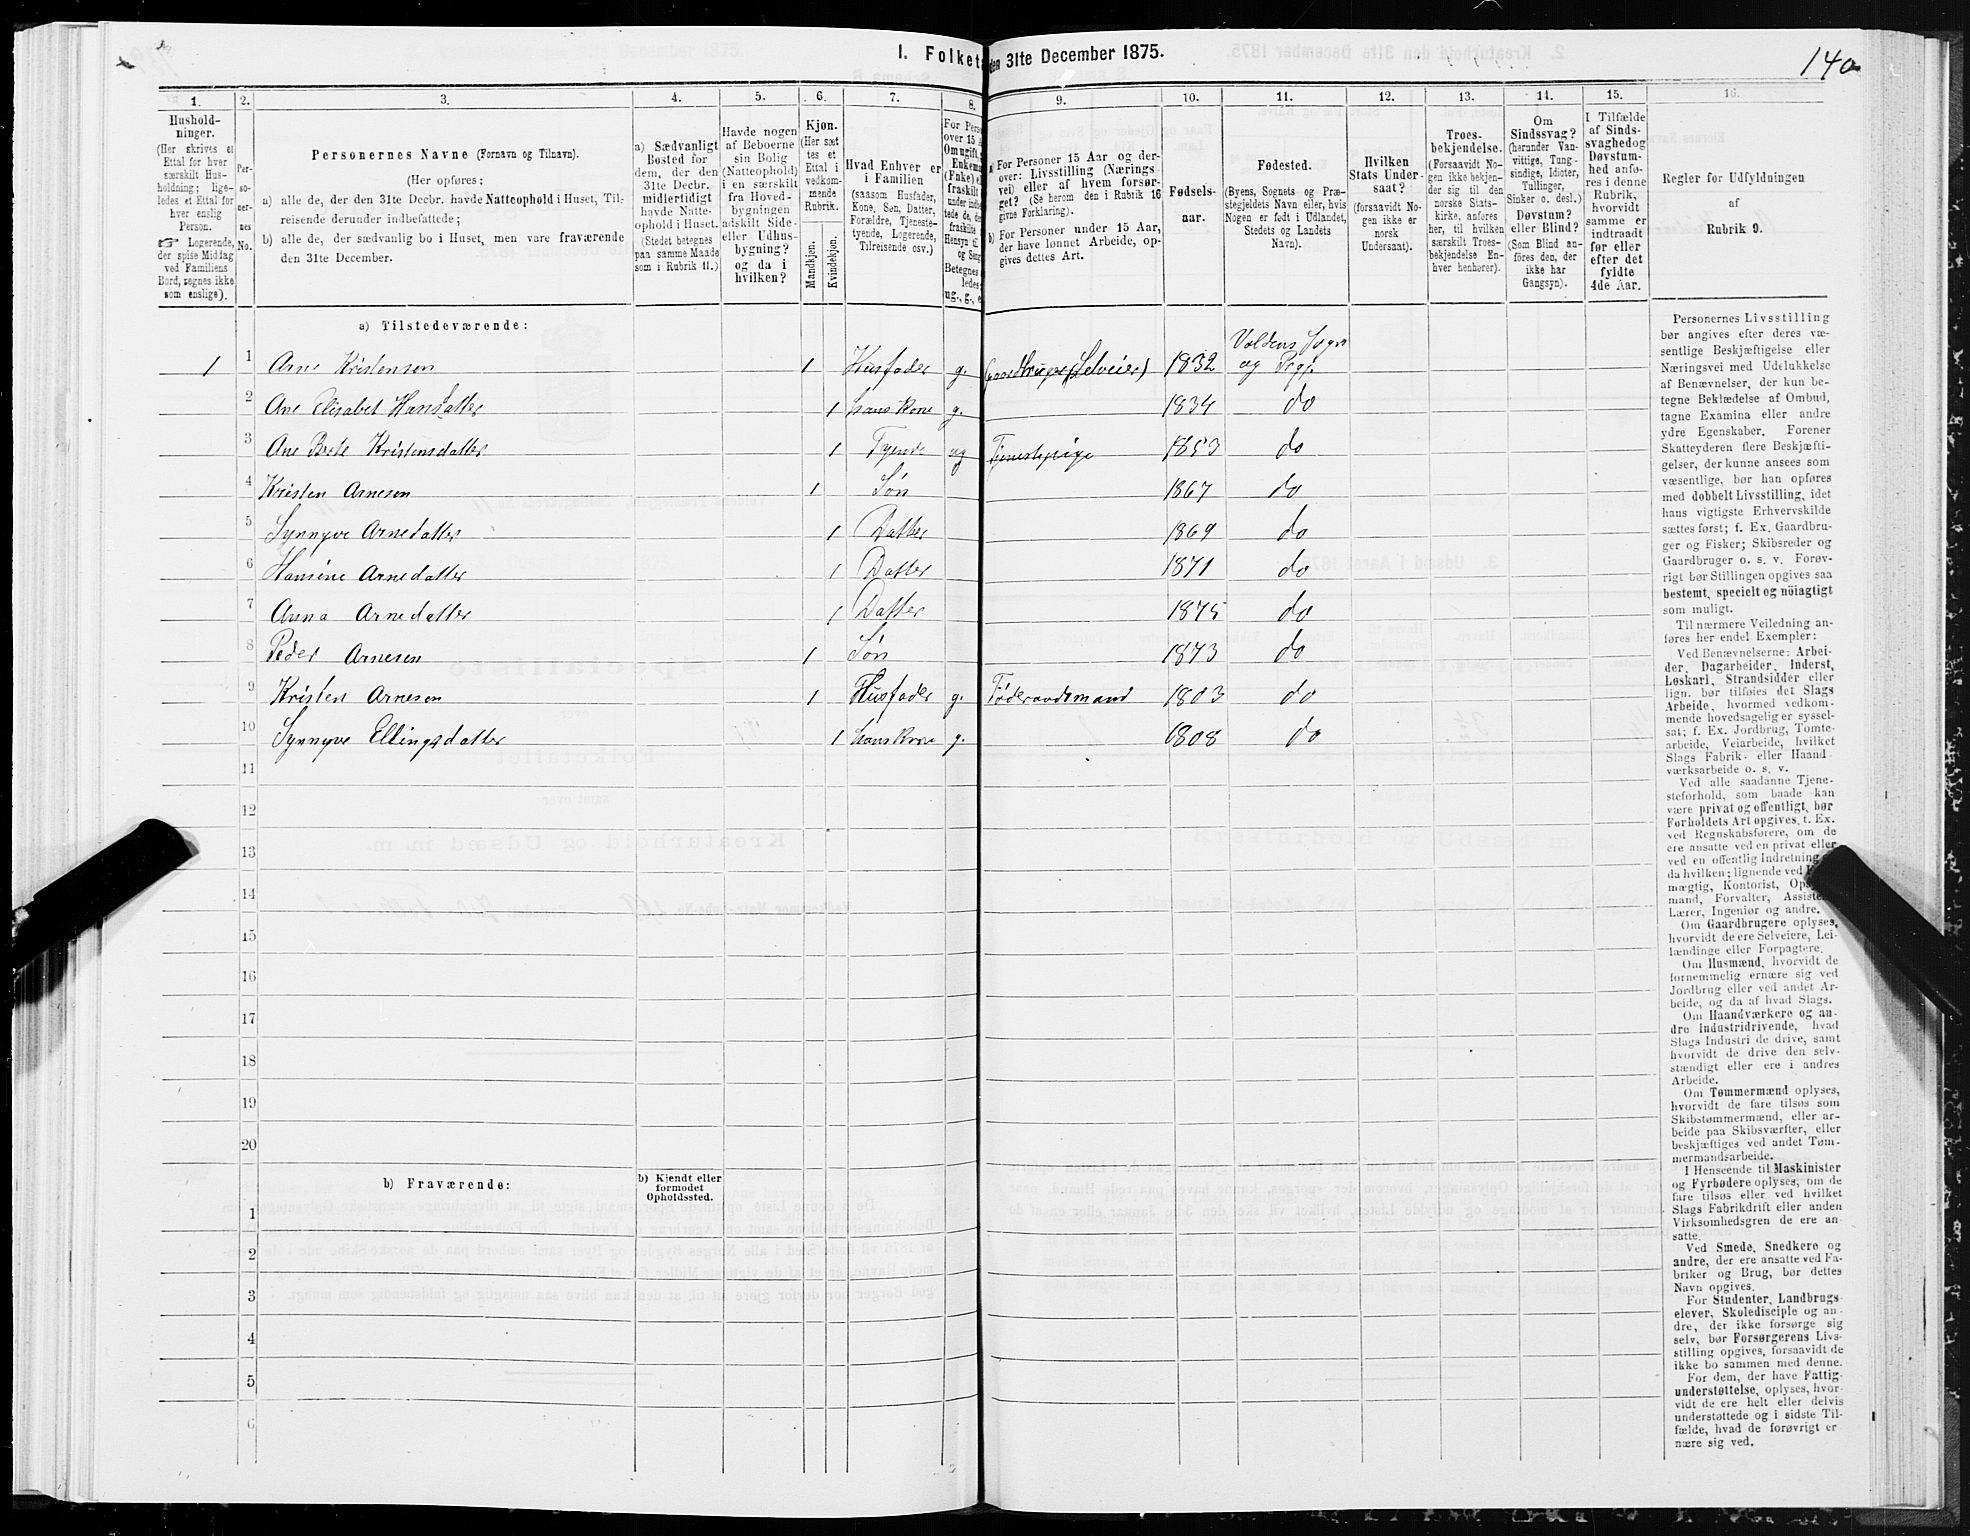 140
I. Folketæ den 31te December 1875.
1. 2. 3. 4. 5. 6. 7. 8. 9. 10. 11. 12. 13. 14. 15. 16.
Hushold-
ninger.
(Her skrives et
Ettal for hver
særskilt Hus-
holdning; lige-
ledes et Ettal for
hver enslig
Person.
☞ Logerende,
der spise Middag
ved Familiens
Bord, regnes ikke
som enslige).
Per-
so-
ner-
nes
No.
Personernes Navne (Fornavn og Tilnavn).
(Her opføres:
a) alle de, der den 31te Decbr. havde Natteophold i Huset, Til-
reisende derunder indbefattede;
b) alle de, der sædvanlig bo i Huset, men vare fraværende
den 31te December.
a) Sædvanligt
Bosted for
dem, der den
31te Decbr.
midlertidigt
havde Natte-
ophold i Huset.
(Stedet betegnes
paa samme Maade
som i Rubrik 11.)
Havde nogen
af Beboerne
sin Bolig
(Natteophold)
i en særskilt
fra Hoved-
bygningen
adskilt Side-
eller Udhus-
bygning?
og da i
hvilken?
Kjøn.
(Her sæt-
tes et
Ettal i
vedkom-
mende
Rubrik.
Mandkjøn.
Kvindekjøn.
Hvad Enhver er
i Familien
(saasom Husfader,
Kone, Søn, Datter,
Forældre, Tjeneste-
tyende, Logerende,
Tilreisende osv.)
For Pers
over 15 A
Om ugift,
Enkema
(Enke) e
fraskilt
under indb
tede de, d
fraskilte
Hensyn til
og Sen
Betegnes
ledes:
ug., g., e
a) For Personer 15 Aar og der-
over: Livsstilling (Nærings
vei) eller af hvem forsør-
get? (Se herom den i Rubrik 16
givne Forklaring).
b) For Personer under 15 Aar,
der have lønnet Arbeide, op-
gives dettes Art.
Fødsels-
aar.
Fødested.
(Byens, Sognets og Præ-
stegjeldets Navn eller, hvis
Nogen er født i Udlandet,
Stedets og Landets
Navn).
Hvilken
Stats Under-
saat?
(forsaavidt No-
gen ikke er
norsk
Undersaat).
Troes-
bekjendelse.
(Forsaavidt No-
gen ikke bekjen-
der sig til den
norske Stats-
kirke, anføres
her, til hvilken
særskilt Troes-
bekjendelse En-
hver henhører).
Om
Sindssvag?
(herunder Van-
vittige, Tung-
sindige, Idioter,
Tullinger,
Sinker o. desl.)
Døvstum?
eller Blind?
(Som Blind an-
føres den, der
ikke har
Gangsyn).
I Tilfælde
af Sinds-
svaghed og
Døvstum-
hed anfø-
res i denne
Rubrik,
hvorvidt
samme er
indtraadt
før eller
efter det
fyldte
4de Aar.
Regler for Udfyldningen
af
Rubrik 9.
a) Tilstedeværende:
1 1 Arne Kristensen 1 Husfader g. Gaardbruger (Selveier) 1832 Voldens Sogn og Prgj.
2 Ane Elisabet Hansdatter 1 hans Kone g. 1834 do
3 Ane Berte Kristensdatter 1 Tyende ug Tjenestepige 1853 do
4 Kristen Arnesen 1 Søn 1867 do
5 Synnyve Arnedatter 1 Datter 1869 do
6 Hansine Arnedatter 1 Datter 1871 do
7 Anna Arnedatter 1 Datter 1875 do
8 Peder Arnesen 1 Søn 1873 do
9 Kristen Arnesen 1 Husfader g. Føderaadsmand 1803 do
10 Synnyve Ellingsdatter 1 hans Kone g. 1808 do
11
12
13
14
15
16
17
18
19
20
b) Fraværende:
b) Kjendt eller
formodet
Opholdssted.
1
2
3
4
5
6
Personernes Livsstilling
bør angives efter deres væ-
sentlige Beskjæftigelse eller
Næringsvei med Udelukkelse
af Benævnelser, der kun be-
tegne Beklædelse af Ombud,
tagne Examina eller andre
ydre Egenskaber. Forener
Skatteyderen flere Beskjæfti-
gelser, der kunne ansees som
væsentlige, bør han opføres
med dobbelt Livsstilling, idet
hans vigtigste Erhvervskilde
sættes først; f. Ex. Gaardbru-
ger og Fisker; Skibsreder og
Gaardbruger o. s. v. Forøv-
rigt bør Stillingen opgives saa
bestemt, specielt og nöiagtigt
som muligt.
Til nærmere Veiledning an-
føres her endel Exempler:
Ved Benævnelserne: Arbei-
der, Dagarbeider, Inderst,
Løskarl, Strandsidder eller
lign. bør tilføies det Slags
Arbeide, hvormed vedkom-
mende hovedsagelig er syssel-
sat; f. Ex. Jordbrug, Tomte-
arbeide, Veiarbeide, hvilket
Slags Fabrik- eller Haand-
værksarbeide o. s. v.
Ved alle saadanne Tjene-
steforhold, som baade kan
være privat og offentligt, bør
Forholdets Art opgives, t. Ex.
ved Regnskabsførere, om de
ere ansatte ved en privat eller
ved en offentlig Indretning og
da hvilken; lignende ved
mægtig, Kontorist, Op
mand, Forvalter, Assiste
Lærer, Ingeniør og andre.
Om Gaardbrugere oplyses,
hvorvidt de ere Selveiere, Lei-
lændinge eller Forpagtere.
Om Husmænd, hvorvidt de
fornemmelig ernære sig ved
Jordbrug eller ved andet Ar-
beide, og da af hvad Slags.
Om Haandværkere og an-
dre Industridrivende, hvad
Slags Industri de drive, samt
hvorvidt de drive den selv-
stændigt eller ere i andres
Arbeide.
Om Tømmermænd oplyses,
hvorvidt de fare tilsøs som
Skibstømmermænd, eller ar-
beide paa Skibsværfter, eller
beskjæftiges ved andet Tøm-
mermandsarbeide.
I Henseende til Maskinister
og Fyrbødere oplyses, om de
fare tilsøs eller ved hvilket
Slags Fabrikdrift eller anden
Virksomhedsgren de ere an-
satte.
Ved Smede, Snedkere og
andre, der ere ansatte ved Fa-
briker og Brug, bør dettes
Navn opgives.
For Studenter, Landbrugs-
elever, Skoledisciple og an-
dre, der ikke forsørge sig
selv, bør Forsørgerens Livs-
stilling opgives, forsaavidt de
ikke bo sammen med denne.
For dem, der have Fattig-
understøttelse, oplyses, hvor-
vidt de ere helt eller delvis
understøttede og i sidste Til-
fælde, hvad de forøvrigt er-
nære sig ved.